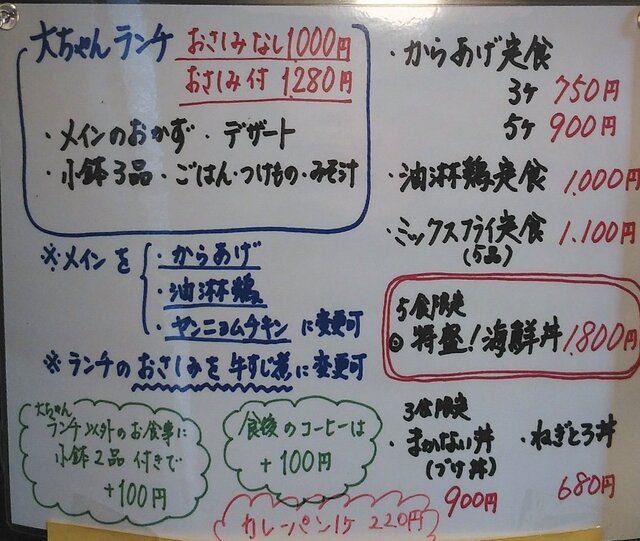 大ちゃんランチ おさしみなし1000円
おさしみ付 1280円
・メインのおかず ・デザート
・小鉢3品・ごはん・つけもの・みそ汁
※メインを
・からあげ
・油淋鶏
・ヤンニョムチキン に変更可
※ランチのおさしみを牛すじ煮に変更可
大ちゃん
ランチ以外のお食事に
小鉢2品 付きで
+100円
食後のコーヒーは
+100円
カレーパン1ケ 220円
・からあげ定食
3ケ 750円
5ケ 900円
・油淋鶏定食 1,000円
・ミックスフライ定食 1,100円
(5品)
5食限定
◎ 特盛!海鮮丼 1,800円
3食限定
・まかない丼
(づけ丼)
900円
・ねぎとろ丼
680円